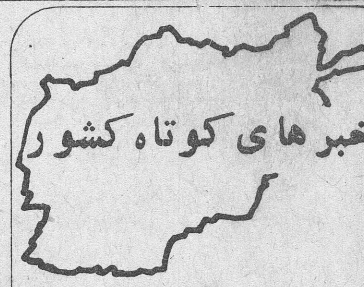 خبر های کوتاه کشور